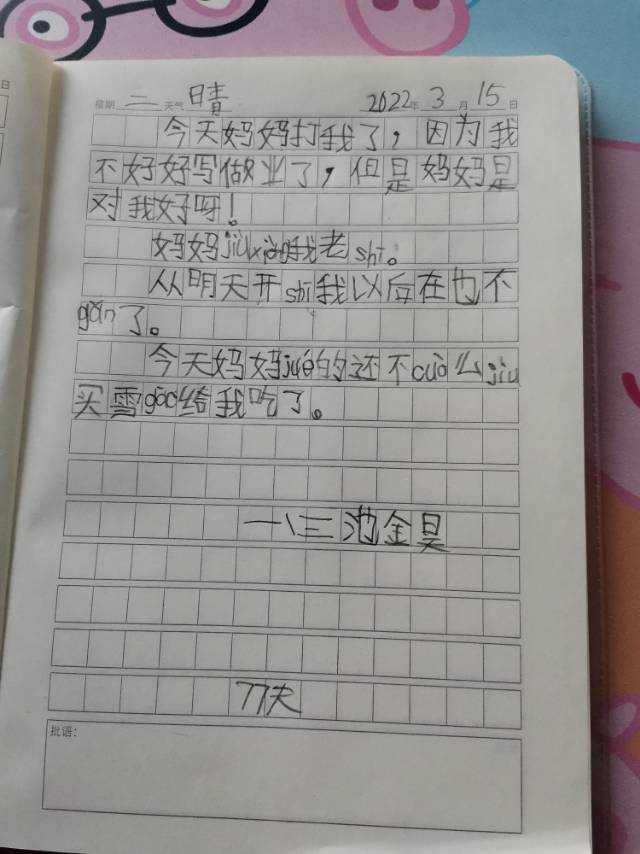 日
星期 二 天气 晴 2022年 3月 15日
今天妈妈打我了，因为我
不好好写做业了，但是妈妈是
对我好呀！
妈妈jiù xiàng我老shī。
从明天开shǐ我以后在也不
gǎn了。
今天妈妈jué的还不cuò么jiu
买雪gāo给我吃了。
一八三池金昊
77天
批语：